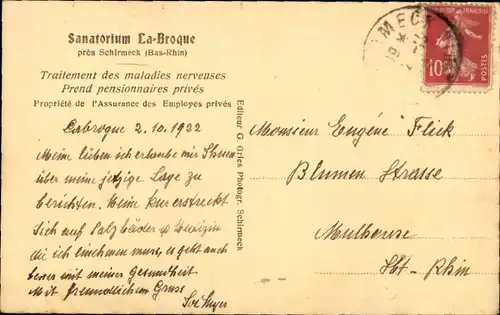 Sanatorium La-Broque
près Schirmeck (Bas-Rhin)
Traitement des maladies nerveuses
Prend pensionnaires privés
Propriété de l'Assurance des Employés privés
Labroque 2.10.1922
Meine lieben ich erlaube mir Ihnen
über meine jetzige Lage zu
berichten. Meine Kur erstreckt
sich auf Salz bäder & Medizin
die ich einnehmen muss, es geht auch
besser mit meiner Gesundheit
Mit freundlichem Gruss
Editeur G. Gries Photogr. Schirmeck
MECK
10c
POSTES
Monsieur Eugéne Flick
Blumen Strasse
Mulhouse
Ht-Rhin